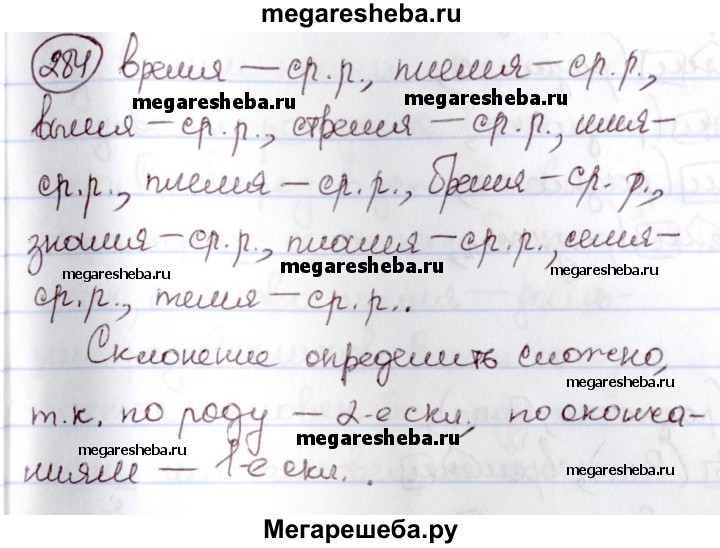 megaresheba.ru
284 время — ср. р., племя — ср. р.,
megaresheba.ru megaresheba.ru
вымя — ср. р., стремя — ср. р., имя —
ср. р., племя — ср. р., бремя — ср. р.,
знамя — ср. р., пламя — ср. р., семя —
megaresheba.ru megaresheba.ru megaresheba.ru
ср. р., темя — ср. р..
Склонение определить сложно,
megaresheba.ru
т.к. по роду — 2-е скл. по оконча-
megaresheba.ru megaresheba.ru megaresheba.ru
ниям — 1-е скл..
Мегарешеба.ру